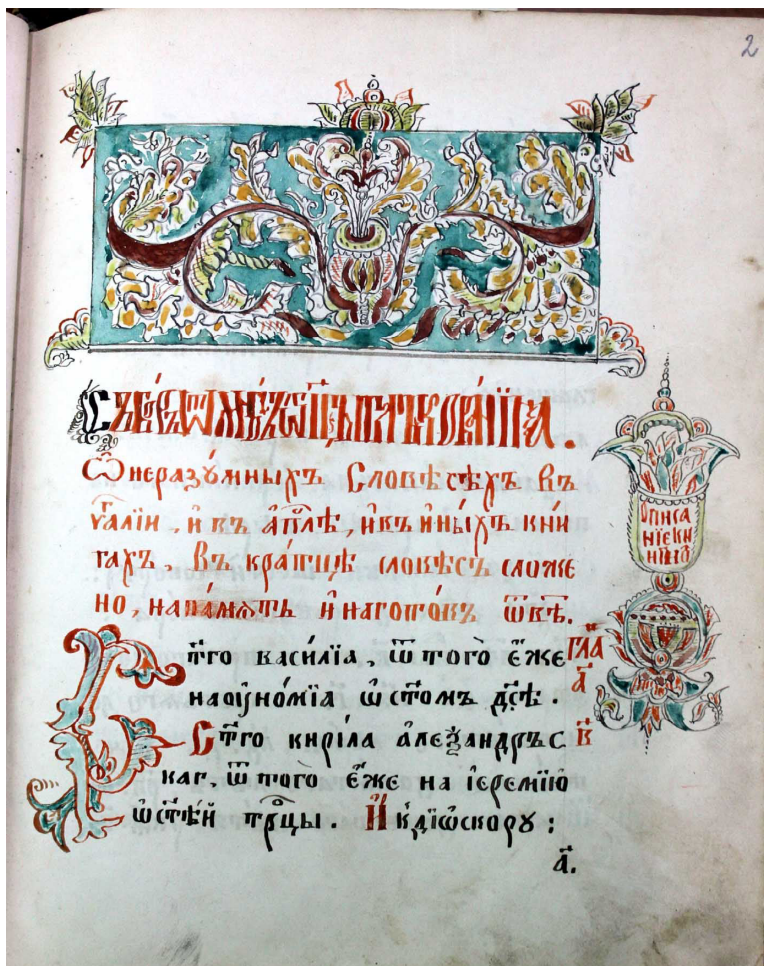 2
Ѿ неразꙋмныхъ Словѣсѣхъ въ
ѵ҆аліи, и҆ въ а҆пⷭ҇лѣ, и҆ въ и҆ныхъ кни
гахъ, въ кра́тцѣ словѣсъ сложе
но, на па́мѧть и҆ на гото́въ ѿвѣ.
Описа
нїе кн
ст҃го васи́лїѧ, ѿ того̀ є҆́же
гла
на оу҆но́мїа ѡ҆ ст҃омъ дс҃ѣ.
а҃
Ст҃го кири́ла алеѯандръс
в҃
каг, ѿ того̀ є҆́же на і҆еремі́ю
ѡ҆ ст҃ѣй тро́цы. И҆ к дїѡ҆скорꙋ:
а҃.